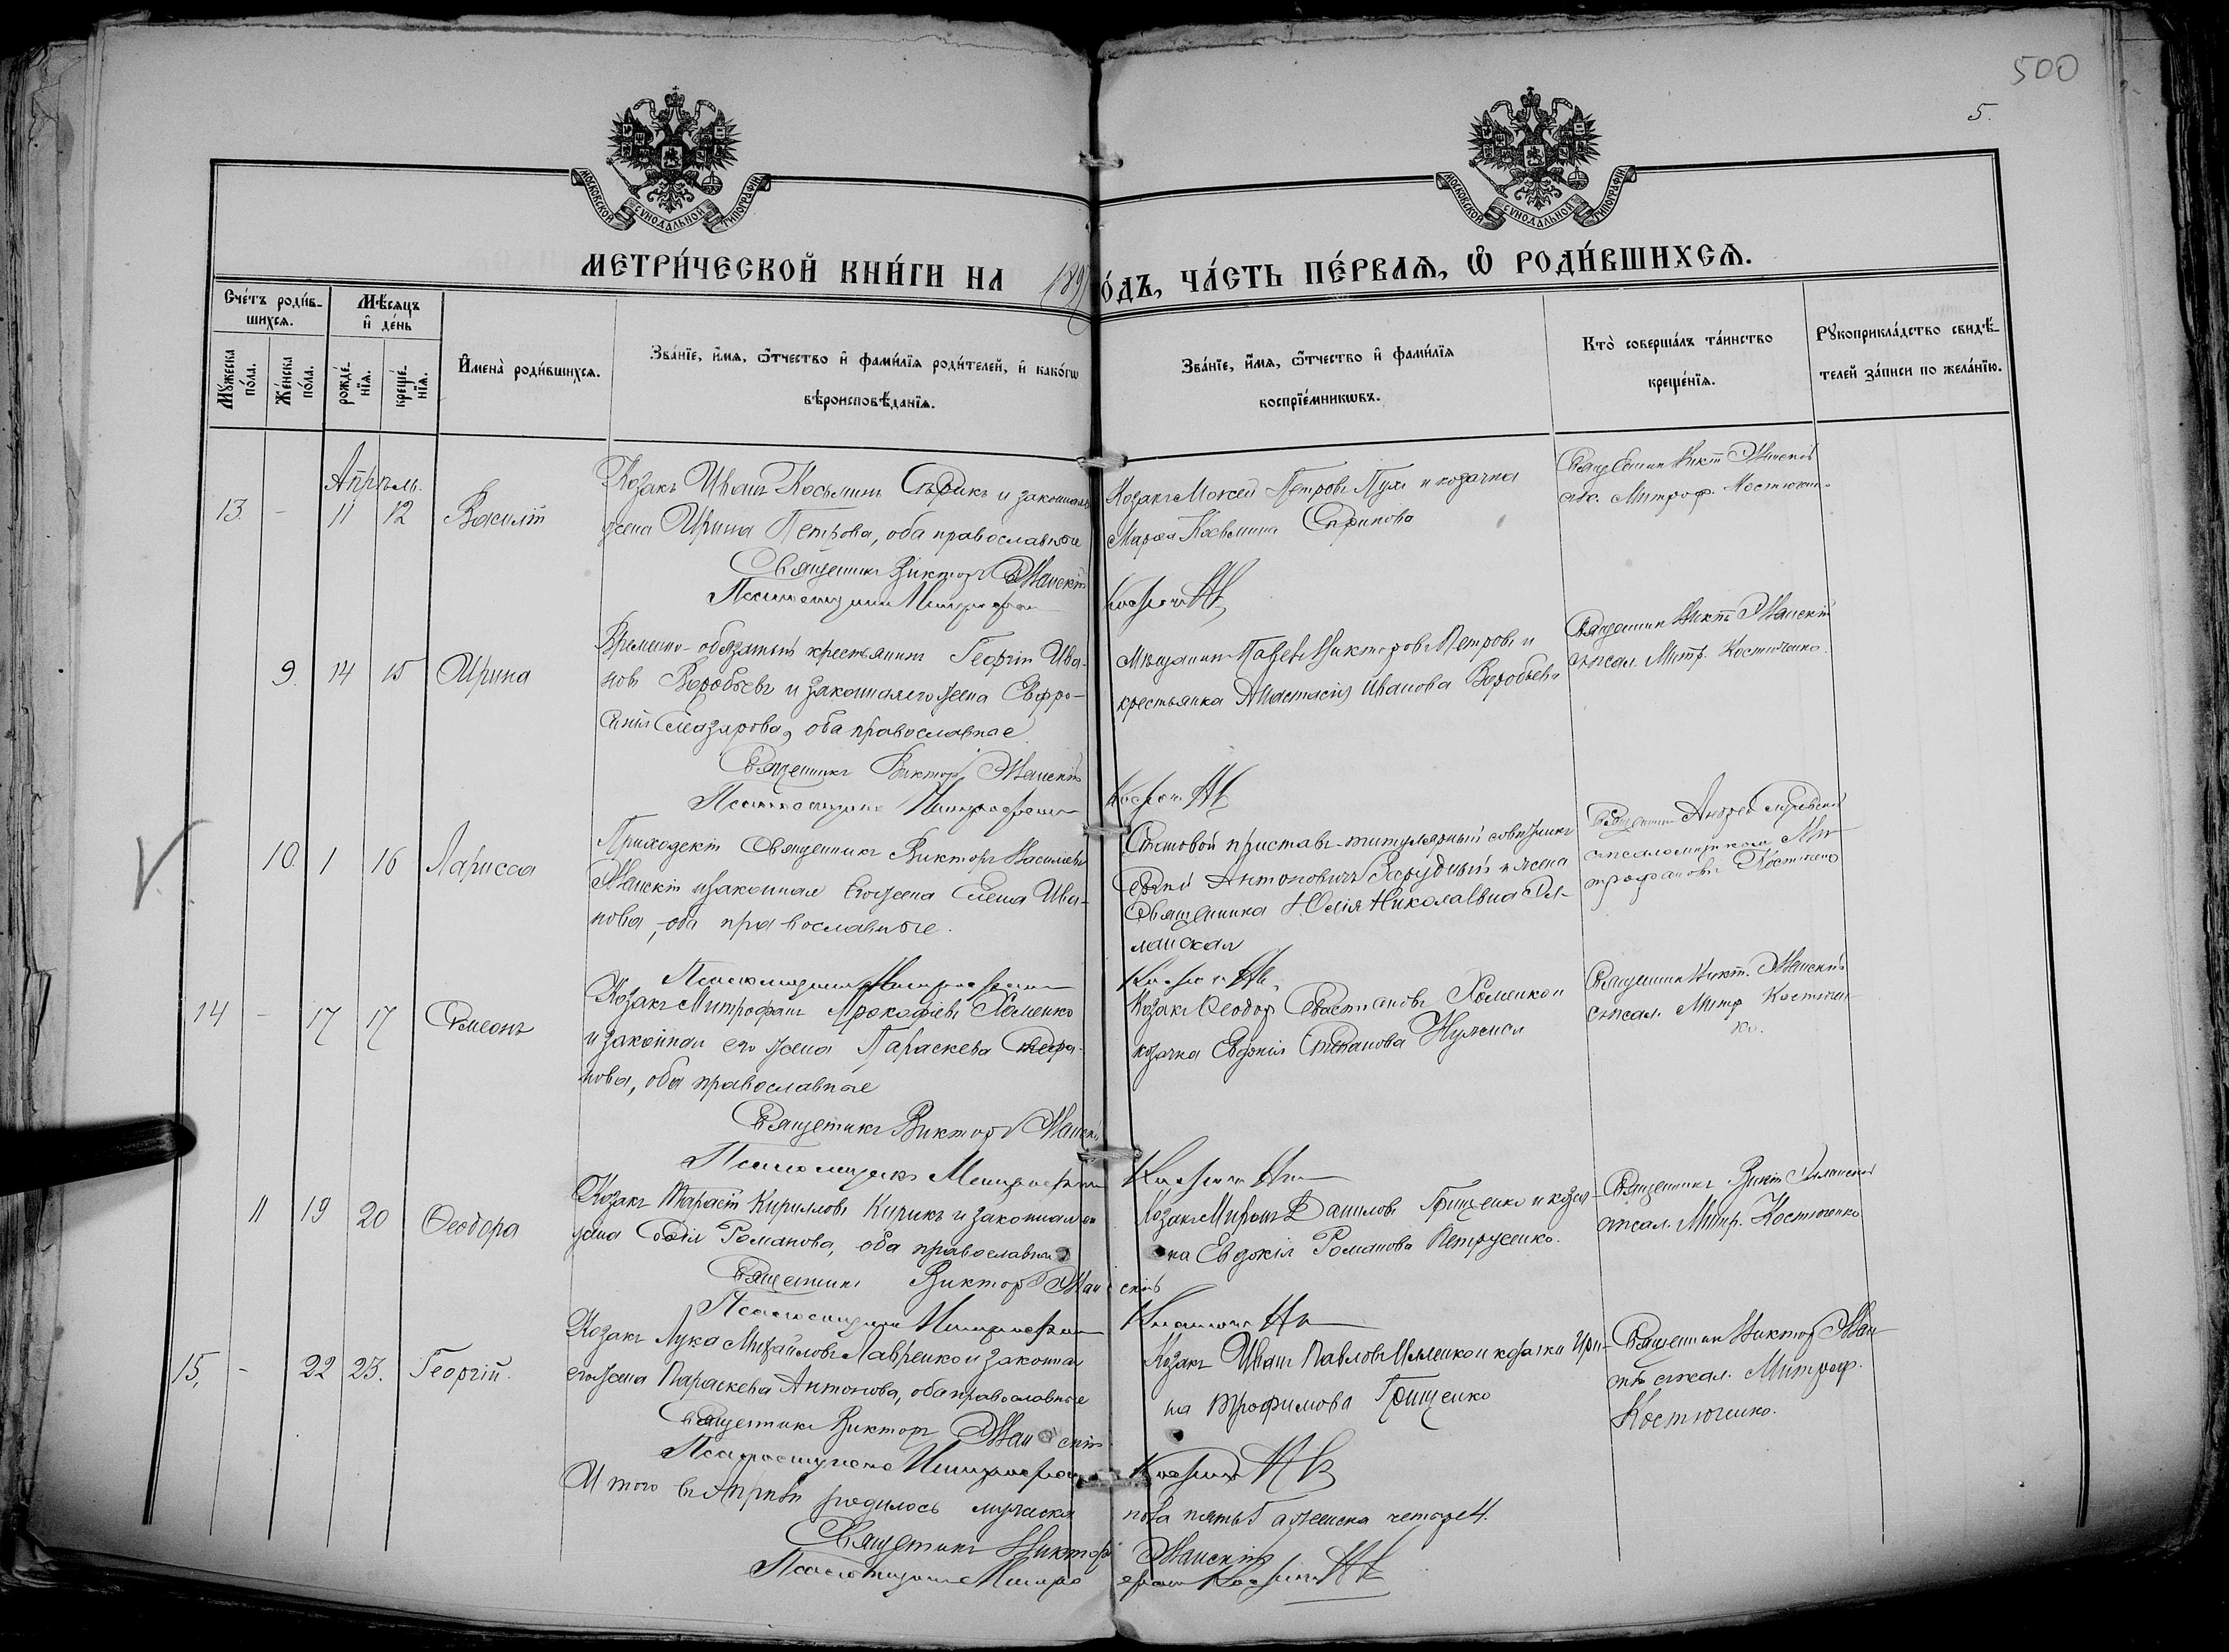 500
5.
МОСКОВСКОЙ СѴНОДАЛЬНОЙ ТИПОГРАФІИ
МОСКОВСКОЙ СѴНОДАЛЬНОЙ ТИПОГРАФІИ
МЕТРИ́ЧЕСКОЙ КНИ́ГИ НА 189 О́ДЪ, ЧА́СТЬ ПЕ́РВАѦ, Ѽ РОДИ́ВШИХСѦ.
Сче́тъ роди́в-
шихсѧ.
Мꙋ́жеска
по́ла.
Же́нска
по́ла.
Мѣ́сѧцъ
и҆ де́нь
рожде́-
нїѧ.
креще́-
нїѧ.
И҆мена̀ роди́вшихсѧ.
Зва́нїе, и҆́мѧ, ѻ҆́тчество и҆ фами́лїѧ роди́телей, и҆ како́гѡ
вѣроисповѣ́данїѧ.
Зва́нїе, и҆́мѧ, ѻ҆́тчество и҆ фами́лїѧ
воспрїе́мникѡвъ.
Кто̀ соверша́лъ та́инство
креще́нїѧ.
Рꙋкоприкла́дство свидѣ́-
телей за́писи по жела́нїю.
Апрѣль.
13. - 11 12 Василій
Козакъ Иванъ Косьминъ Сѣрикъ и законная
жена Ирина Петрова, оба православные
Священникъ Викторъ
Псаломщикъ Митрофанъ
Козакъ Моисей Петровъ Пухъ и козачка
Марія Косьмина Сѣрикова
Священникъ Викт.
псал. Митроф. Костючен.
9. 14 15 Ирина
Временно-обязанный крестьянинъ Георгій Ива-
новъ Воробьевъ и законная его жена Евфро-
синія Назарова, оба православные
Священникъ Викторъ
Псаломщикъ Митрофанъ
Мѣщанинъ Павелъ Викторовъ Петровъ и
крестьянка Анастасія Иванова Воробьева
Священникъ Виктъ
псал. Митр. Костюченко.
10 1 16 Ларисса
Приходскій Священникъ Викторъ Васильевъ
и законная его жена Елена Ива-
новна, оба православные.
Псаломщикъ Митрофанъ
Становой приставъ - титулярный совѣтникъ
Антоновичъ Зарудный и жена
Священника Юлія Николаевна
манская
Священникъ Андрей
съ псаломщикомъ Ми-
трофановъ Костючено
14 - 17 17 Сѵмеонъ
Козакъ Митрофанъ Прокофіевъ Хоменко
и законная его жена Параскева Стефа-
нова, оба православные
Священникъ Викторъ
Псаломщикъ Митрофанъ
Козакъ Ѳеодоръ Севастіановъ Хоменко и
козачка Евдокія Степанова
Священникъ Викт.
псал. Митр. Костючен-
ко.
11 19 20 Ѳеодора
Козакъ Тарасій Кирилловъ Кирикъ и законная его
жена Романова, оба православные
Священникъ Викторъ
Псаломщикъ Митрофанъ
Козакъ Миронъ Даниловъ Грищенко и козач-
ка Евдокія Романова Петрусенко.
Священникъ Викт.
псал. Митр. Костюченко
15, - 22 23. Георгій.
Козакъ Лука Михайловъ Лавренко и законная
его жена Параскева Антонова, оба православные
Священникъ Викторъ
Псаломщикъ Митрофанъ
Козакъ Иванъ Павловъ Ильенко и козачка Ири-
на Трофимова Грищенко
Священникъ Виктор
псал. Митроф.
Костюченко.
Итого въ Апрѣлѣ родилось мужеска
пола пять 5 а женска четыре 4.
Священникъ Викторъ
Псаломщикъ Митро
фанъ